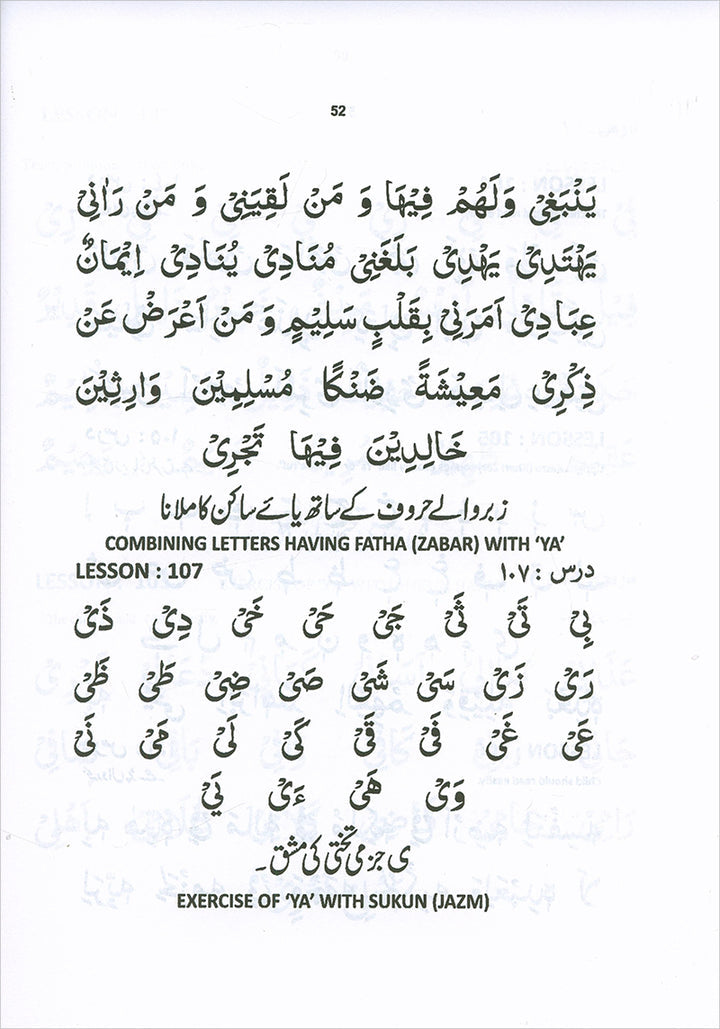 52
يَنْۢبَغِيْ وَلَهُمْ فِيْهَا وَ مَنْ لَقِيَنِيْ وَ مَنْ رَاٰنِيْ
يَهْتَدِيْ يَهْدِيْ بَلَغَنِيْ مُنَادِيْ يُنَادِيْ اِيْمَانٌ
عِبَادِيْ اَمَرَنِيْ بِقَلْبٍ سَلِيْمٍ وَ مَنْ اَعْرَضْ عَنْ
ذِكْرِيْ مَعِيْشَةً ضَنْكًا مُسْلِمِيْنَ وَارِثِيْنَ
خَالِدِيْنَ فِيْهَا تَجْرِيْ
زبر والے حروف کے ساتھ یائے ساکن کا ملانا
COMBINING LETTERS HAVING FATHA (ZABAR) WITH ‘YA’
LESSON : 107 درس : ١٠٧
بِيْ تَيْ ثَيْ جَيْ حَيْ خَيْ دِيْ ذَيْ
رَيْ زَيْ سَيْ شَيْ صَيْ ضِيْ طَيْ ظَيْ
عَيْ غَيْ فَيْ قَيْ كَيْ لَيْ مَيْ نَيْ
وَيْ هَيْ ءَيْ يَيْ
ی جزمی تختی کی مشق ۔
EXERCISE OF ‘YA’ WITH SUKUN (JAZM)